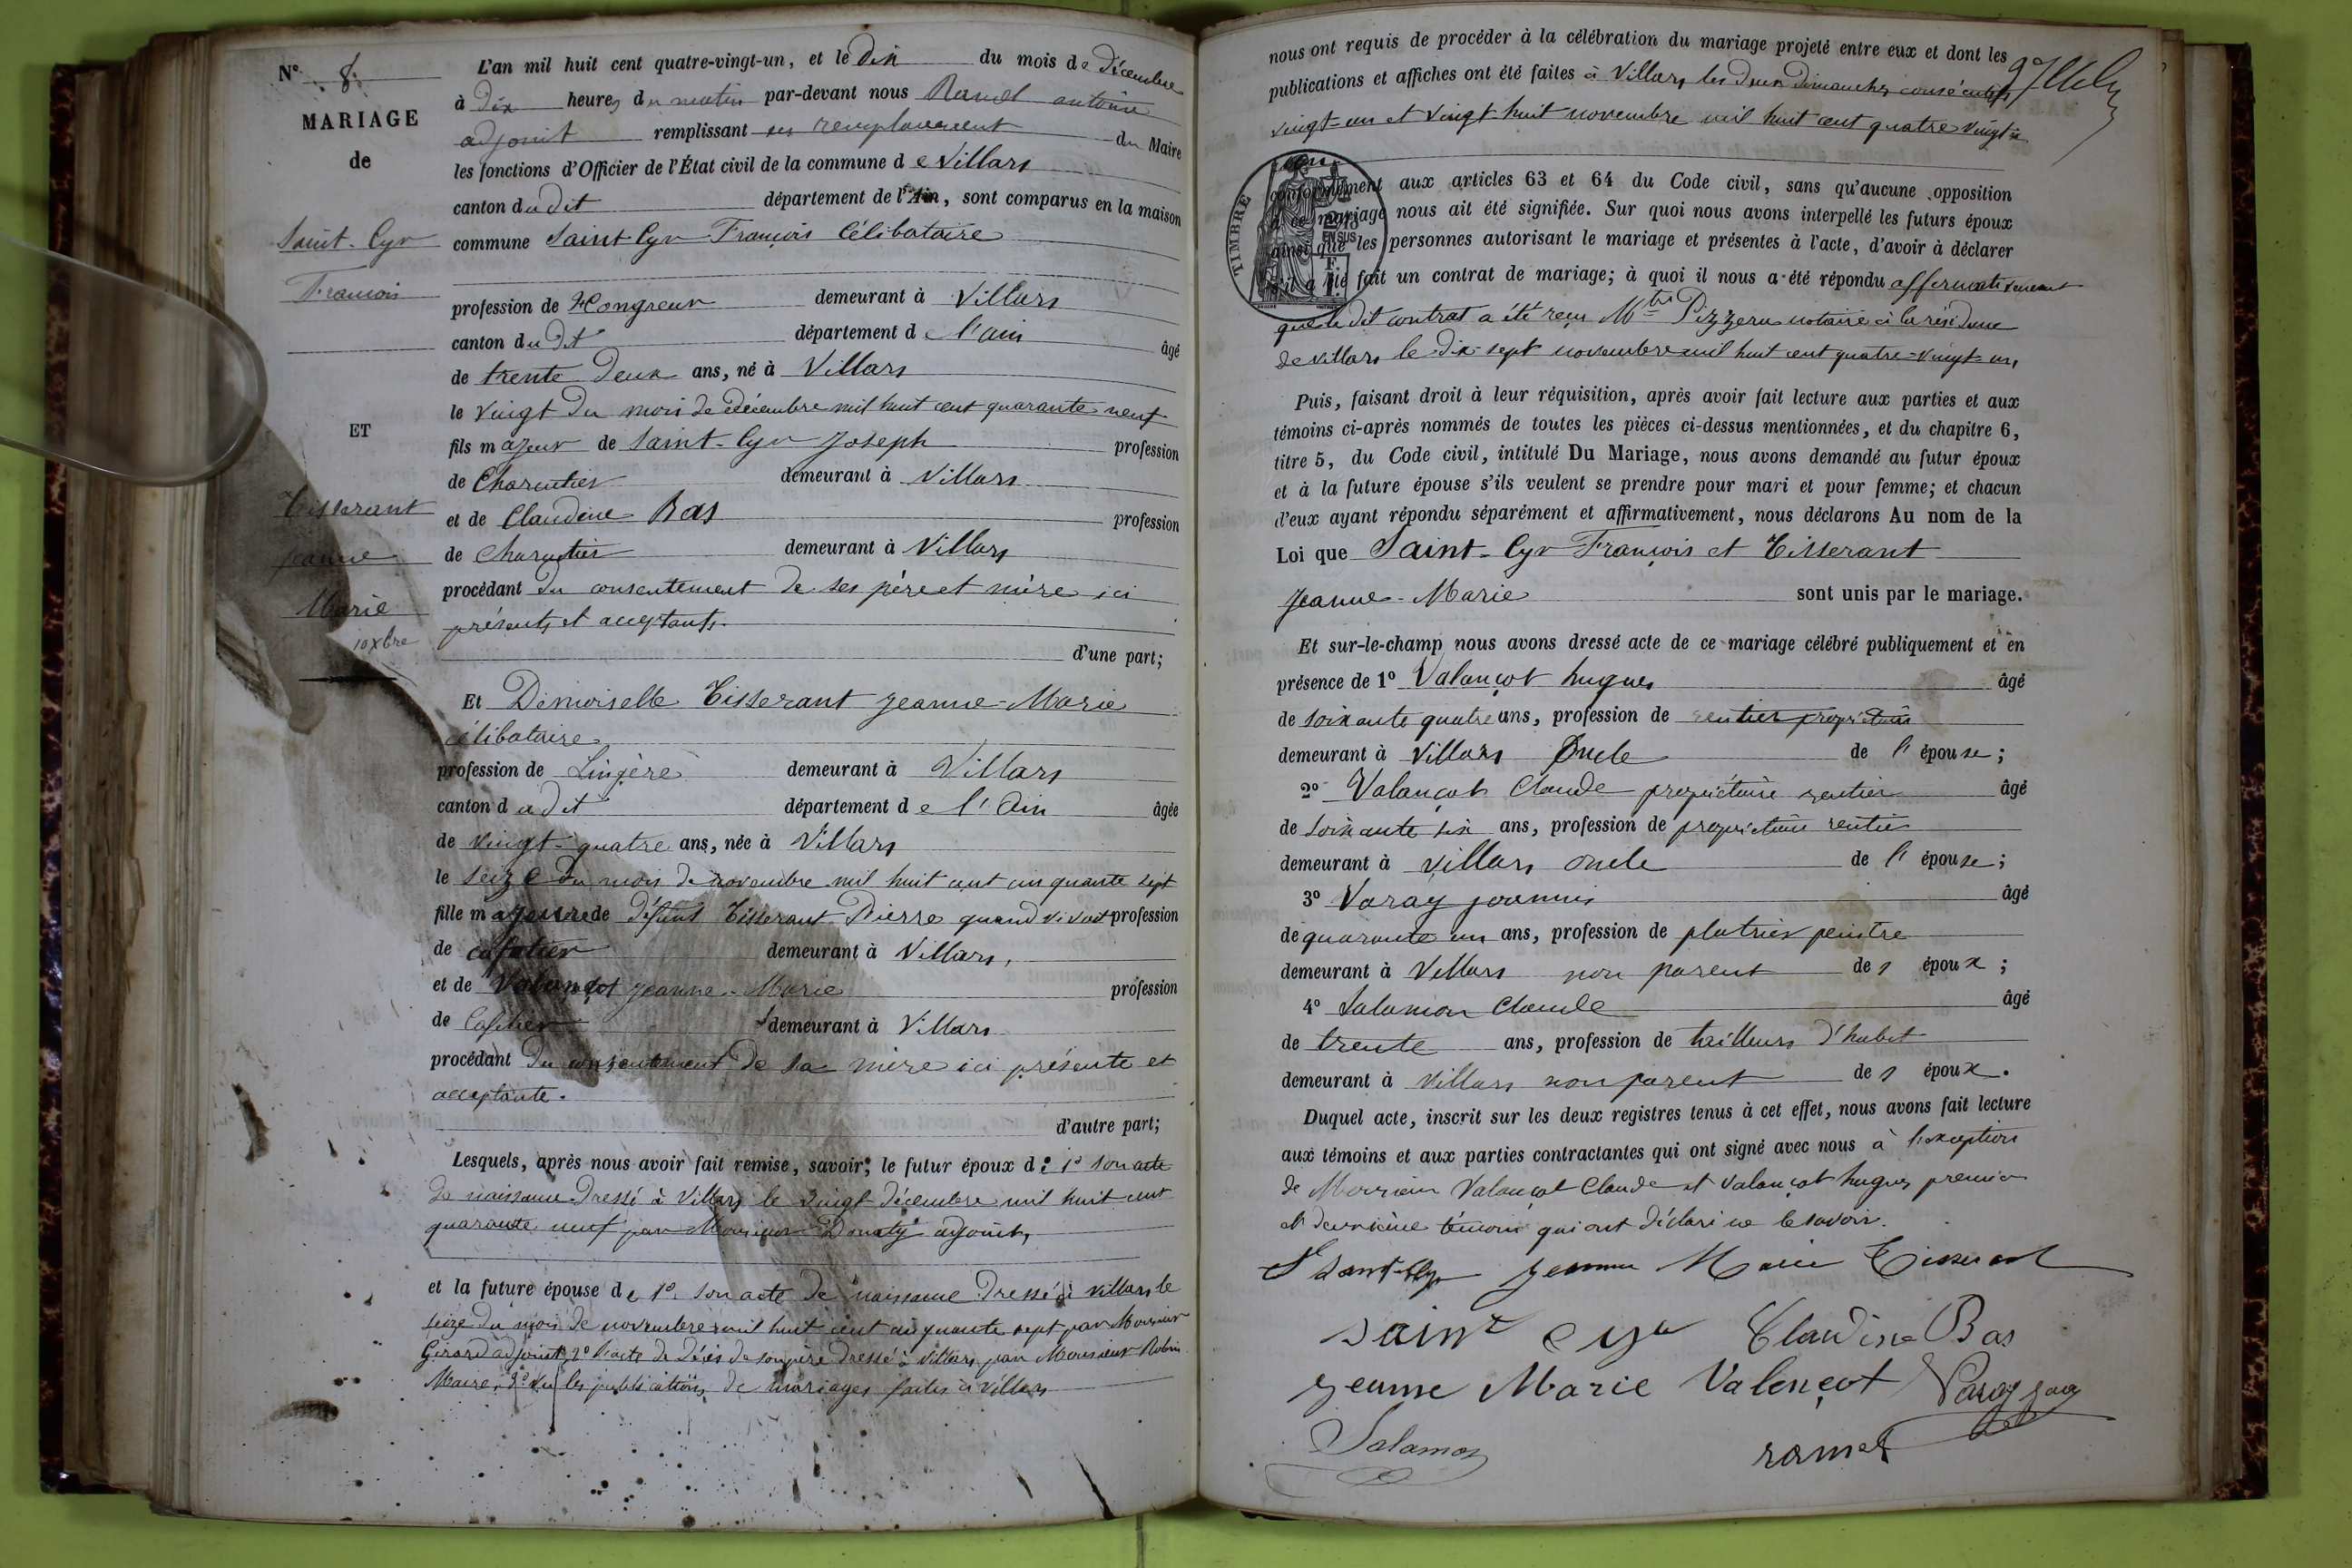 N° 8
MARIAGE
de
Saint-Cyr
François
ET
Tisserant
Jeanne
Marie
10 Xbre
L'an mil huit cent quatre-vingt-un, et le dix du mois de décembre
à dix heures du matin par-devant nous Ramel antoine
adjoint remplissant en remplacement du Maire
les fonctions d'Officier de l'État civil de la commune de Villars
canton dudit département de l'Ain, sont comparus en la maison
commune Saint Cyr François Célibataire
profession de Hongreur demeurant à Villars
canton dudit département de l'ain âgé
de trente deux ans, né à Villars
le vingt du mois de décembre mil huit cent quarante neuf
fils majeur de Saint-Cyr Joseph profession
de Charcutier demeurant à Villars
et de Claudine Bas profession
de Charcutier demeurant à Villars
procédant du consentement de ses père et mère ici
présents et acceptants.
d'une part;
Et Demoiselle Tisserant Jeanne-Marie
célibataire
profession de Lingère demeurant à Villars
canton dudit département de l'Ain âgée
de vingt-quatre ans, née à Villars
le seize du mois de novembre mil huit cent cinquante sept
fille majeure de défunt Tisserant Pierre quand vivait profession
de cafetier demeurant à Villars,
et de Valançot Jeanne-Marie profession
de Cafetier demeurant à Villars
procédant du consentement de sa mère ici présente et
acceptante.
d'autre part;
Lesquels, après nous avoir fait remise, savoir; le futur époux d: 1° son acte
de naissance dressé à Villars le vingt décembre mil huit cent
quarante neuf par Monsieur Donaty adjoint,
et la future épouse de 1° son acte de naissance dressé à Villars le
seize du mois de novembre mil huit cent cinquante sept par Monsieur
Girard adjoint, 2° l'acte de décès de son père dressé à Villars par Monsieur Robin
Maire, 3° les publications de mariages faites à Villars
nous ont requis de procéder à la célébration du mariage projeté entre eux et dont les
publications et affiches ont été faites à Villars les deux dimanches consécutifs
vingt-un et vingt-huit novembre mil huit cent quatre vingt
un
TIMBRE
EN SUS
conformément aux articles 63 et 64 du Code civil, sans qu'aucune opposition
à ce mariage nous ait été signifiée. Sur quoi nous avons interpellé les futurs époux
ainsi que les personnes autorisant le mariage et présentes à l'acte, d'avoir à déclarer
s'il a été fait un contrat de mariage; à quoi il nous a été répondu affirmativement
que le dit contrat a été reçu Mtre Pizzera notaire à la résidence
de Villars le dix-sept novembre mil huit cent quatre-vingt-un,
Puis, faisant droit à leur réquisition, après avoir fait lecture aux parties et aux
témoins ci-après nommés de toutes les pièces ci-dessus mentionnées, et du chapitre 6,
titre 5, du Code civil, intitulé Du Mariage, nous avons demandé au futur époux
et à la future épouse s'ils veulent se prendre pour mari et pour femme; et chacun
d'eux ayant répondu séparément et affirmativement, nous déclarons Au nom de la
Loi que Saint-Cyr François et Tisserant
Jeanne-Marie sont unis par le mariage.
Et sur-le-champ nous avons dressé acte de ce mariage célébré publiquement et en
présence de 1° Valançot hugues âgé
de soixante quatre ans, profession de rentier propriétaire
demeurant à Villars Oncle de l'épouse;
2° Valançot Claude propriétaire rentier âgé
de soixante six ans, profession de propriétaire rentier
demeurant à Villars oncle de l'épouse;
3° Varay joannis âgé
de quarante un ans, profession de platrier peintre
demeurant à Villars non parent des époux;
4° Salamon Claude âgé
de trente ans, profession de tailleurs d'habit
demeurant à Villars non parent des époux.
Duquel acte, inscrit sur les deux registres tenus à cet effet, nous avons fait lecture
aux témoins et aux parties contractantes qui ont signé avec nous à l'exception
de Messieurs Valançot Claude et Valançot hugues premier
et deuxième témoin qui ont déclaré ne le savoir.
F Saint-Cyr Jeanne Marie Tisserant
Saint Cyr Claudine Bas
Jeanne Marie Valençot Varay
Salamon
ramel